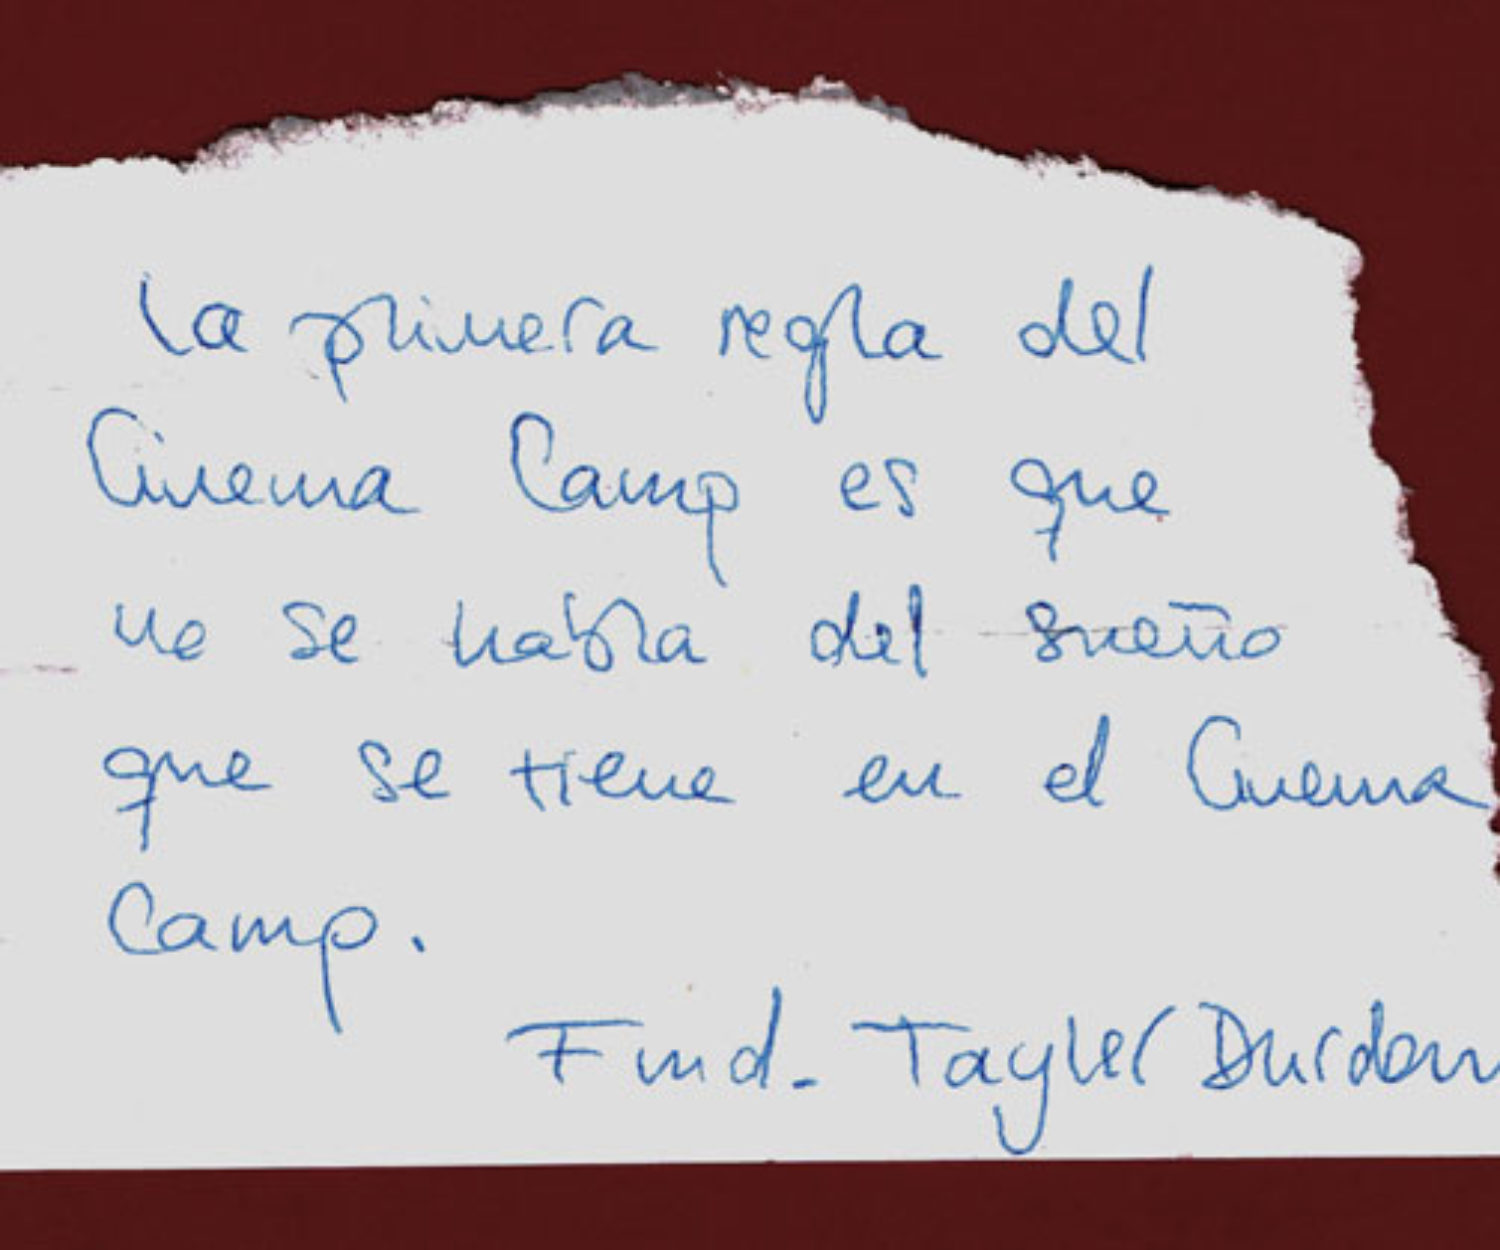 La primera regla del
Cinema Camp es que
no se habla del sueño
que se tiene en el Cinema
Camp.
Fmd. Tayler Durdan